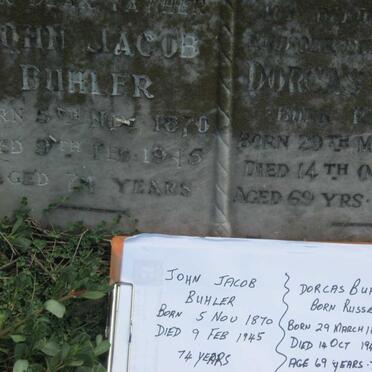 DEAR FATHER
JOHN JACOB
BUHLER
BORN 5TH NOV 1870
DIED 9TH FEB. 1945
AGED 74 YEARS
DORCAS
BORN
BORN 29TH M
DIED 14TH O
AGED 69 YRS.
JOHN JACOB
BUHLER
BORN 5 NOV 1870
DIED 9 FEB 1945
74 YEARS
DORCAS BUH
BORN RUSSE
BORN 29 MARCH 1
DIED 14 OCT 19
AGE 69 YEARS